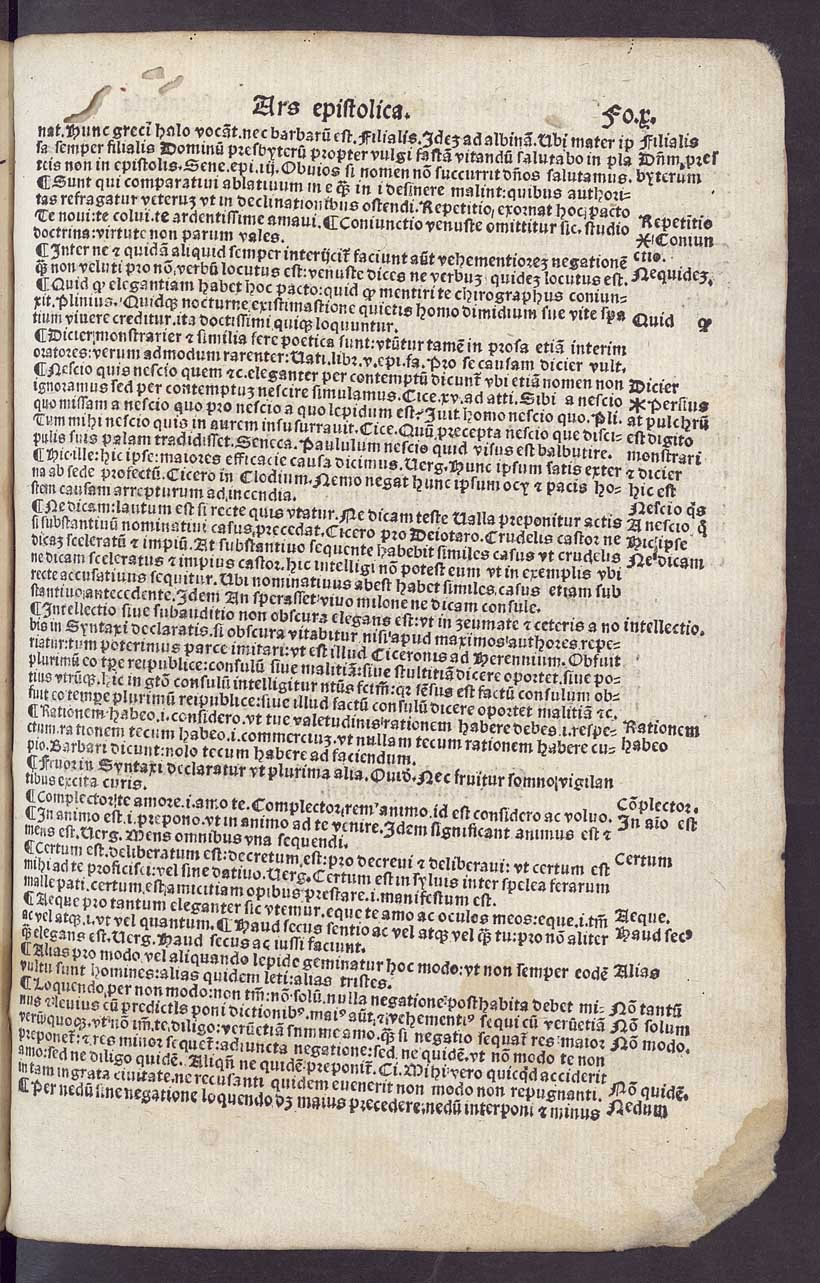 Ars epistolica.
Fo.x.
nat. Hunc greci halo vocãt. nec barbarũ est. Filialis. Idez ad albinã. Ubi mater ip
sa semper filialis Dominũ presbyterũ propter vulgi fastã vitandũ salutabo in pla
teis non in epistolis. Sene. epi. iij. Obuios si nomen nõ succurrit dños salutamus.
¶Sunt qui comparatiui ablatiuum in e q̃̃ in i desinere malint: quibus authori-
tas refragatur veteruz vt in declinationibus ostendi. Repetitio, exornat hoc, pacto
Te noui: te colui. te ardentissime amaui. ¶Coniunctio venuste omittitur sic. studio
doctrina: virtute non parum vales.
¶Inter ne ⁊ quidã aliquid semper interijcit̃ faciunt aũt vehementiorez negationẽ
q̃̃ non veluti pro nõ, verbũ locutus est: venuste dices ne verbuz quidez locutus est.
¶Quid ꝙ elegantiam habet hoc pacto: quid ꝙ mentiri te chirographus coniun-
xit. Plinius. Quidqꝫ nocturne existimastione quietis homo dimidium sue vite spa
tium viuere creditur. ita doctissimi quiqꝫ loquuntur.
¶Dicier, monstrarier ⁊ similia fere poetica sunt: vtũtur tamẽ in prosa etiã interim
oratores: verum admodum rarenter: Uati. libr. v. epi. fa. Pro se causam dicier vult.
¶Nescio quis nescio quem ⁊c. eleganter per contemptũ dicunt̃ vbi etiã nomen non
ignoramus sed per contemptuz nescire simulamus. Cice. xv. ad atti. Sibi a nescio
quo missam a nescio quo pro nescio a quo lepidum est. Iuit homo nescio quo. Pli.
Tum mihi nescio quis in aurem insusurrauit. Cice. Quũ, precepta nescio que disci-
pulis suis palam tradidisset. Seneca. Paululum nescio quid visus est balbutire.
¶Hic ille: hic ipse: maiores efficacie causa dicimus. Uerg. Hunc ipsum satis exter
na ab sede profectũ. Cicero in Clodium. Nemo negat hunc ipsum ocy ⁊ pacis ho-
stem causam arrepturum ad, incendia.
¶Ne dicam: lautum est si recte quis vtatur. Ne dicam teste Ualla preponitur actis
si substantiuũ nominatiui casus, precedat. Cicero pro Deiotaro. Crudelis castor ne
dicaz sceleratũ ⁊ impiũ. At substantiuo sequente habebit similes casus vt crudelis
ne dicam sceleratus ⁊ impius castor. hic intelligi nõ potest eum vt in exemplis vbi
recte accusatiuus sequitur. Ubi nominatiuus abest habet similes, casus etiam sub
stantiuo, antecedente. Idem An sperasset viuo milone ne dicam consule.
¶Intellectio siue subauditio non obscura elegans est: vt in zeumate ⁊ ceteris a no
bis in Syntaxi declaratis. si obscura vitabitur nisi apud maximos authores, repe-
riatur: tum poterimus parce imitari: vt est illud Ciceronis ad Herennium. Obfuit
plurimũ eo tp̃e reipublice: consulũ siue malitiã: siue stultitiã dicere oportet. siue po-
tius vtrũqꝫ. hic in gtõ consulũ intelligitur ntũs fctm̃: qr sẽsus est factũ consulum ob-
fuit eo tempe plurimũ reipublice: siue illud factũ consulũ dicere oportet malitiã ⁊c.
¶Rationem habeo. i. considero. vt tue valetudinis rationem habere debes. i. respe-
ctum. rationem tecum habeo. i. commerciuz. vt nullam tecum rationem habere cu-
pio. Barbari dicunt: nolo tecum habere ad faciendum.
¶Fruor in Syntaxi declaratur vt plurima alia. Ouid. Nec fruitur somno, vigilan
tibus excita curis.
¶Complector te amore. i. amo te. Complector, rem animo. id est considero ac voluo.
¶In animo est. i. prepono. vt in animo ad te venire. Idem significant animus est ⁊
mens est. Uerg. Mens omnibus vna sequendi.
¶Certum est. deliberatum est: decretum, est: pro decreui ⁊ deliberaui: vt certum est
mihi ad te proficisci: vel sine datiuo. Uerg. Certum est in syluis inter spelea ferarum
malle pati. certum, est, amicitiam opibus prestare. i. manifestum est.
¶Aeque pro tantum eleganter sic vtemur. eque te amo ac oculos meos: eque. i. tm̃
ac vel atqꝫ. i. vt vel quantum. ¶Haud secus sentio ac vel atqꝫ vel q̃̃ tu: pro nõ aliter
q̃̃ elegans est. Uerg. Haud secus ac iussi faciunt.
¶Alias pro modo, vel aliquando lepide geminatur hoc modo: vt non semper eodẽ
vultu sunt homines: alias quidem leti: alias tristes.
¶Loquendo, per non modo: non tm̃: nõ solũ. nulla negatione: posthabita debet mi-
nus ⁊ leuius cũ predictis poni dictionibꝰ. maiꝰ aũt, ⁊ vehementiꝰ sequi cũ verũetiã
verũquoqꝫ. vt nõ tm̃, te, diligo: verũetiã summe amo. q̃̃ si negatio sequat̃ res maior
preponet̃: ⁊ res minor sequet̃: adiuncta negatione: sed, ne quidẽ. vt nõ modo te non
amo: sed ne diligo quidẽ. Aliqñ ne quidẽ preponit̃. Ci. Mihi vero quicqd acciderit
in tam ingrata ciuitate, ne recusanti quidem euenerit non modo non repugnanti.
¶Per nedũ sine negatione loquendo dꝫ maius precedere, nedũ interponi ⁊ minus
Filialis
Dñm, pres
byterum
Repetitio
*Coniun
ctio.
Nequidez.
Quid ꝙ
Dicier
*Persius
at pulchrũ
est digito
monstrari
⁊ dicier
hic est
Nescio q̃s
A nescio q̃
Hic, ipse
Ne dicam
intellectio.
Rationem
habeo
Cõplector.
In aĩo est
Certum
Aeque.
Haud secꝰ
Alias
Nõ tantũ
Nõ solum
Nõ modo.
Nõ quidẽ.
Nedum